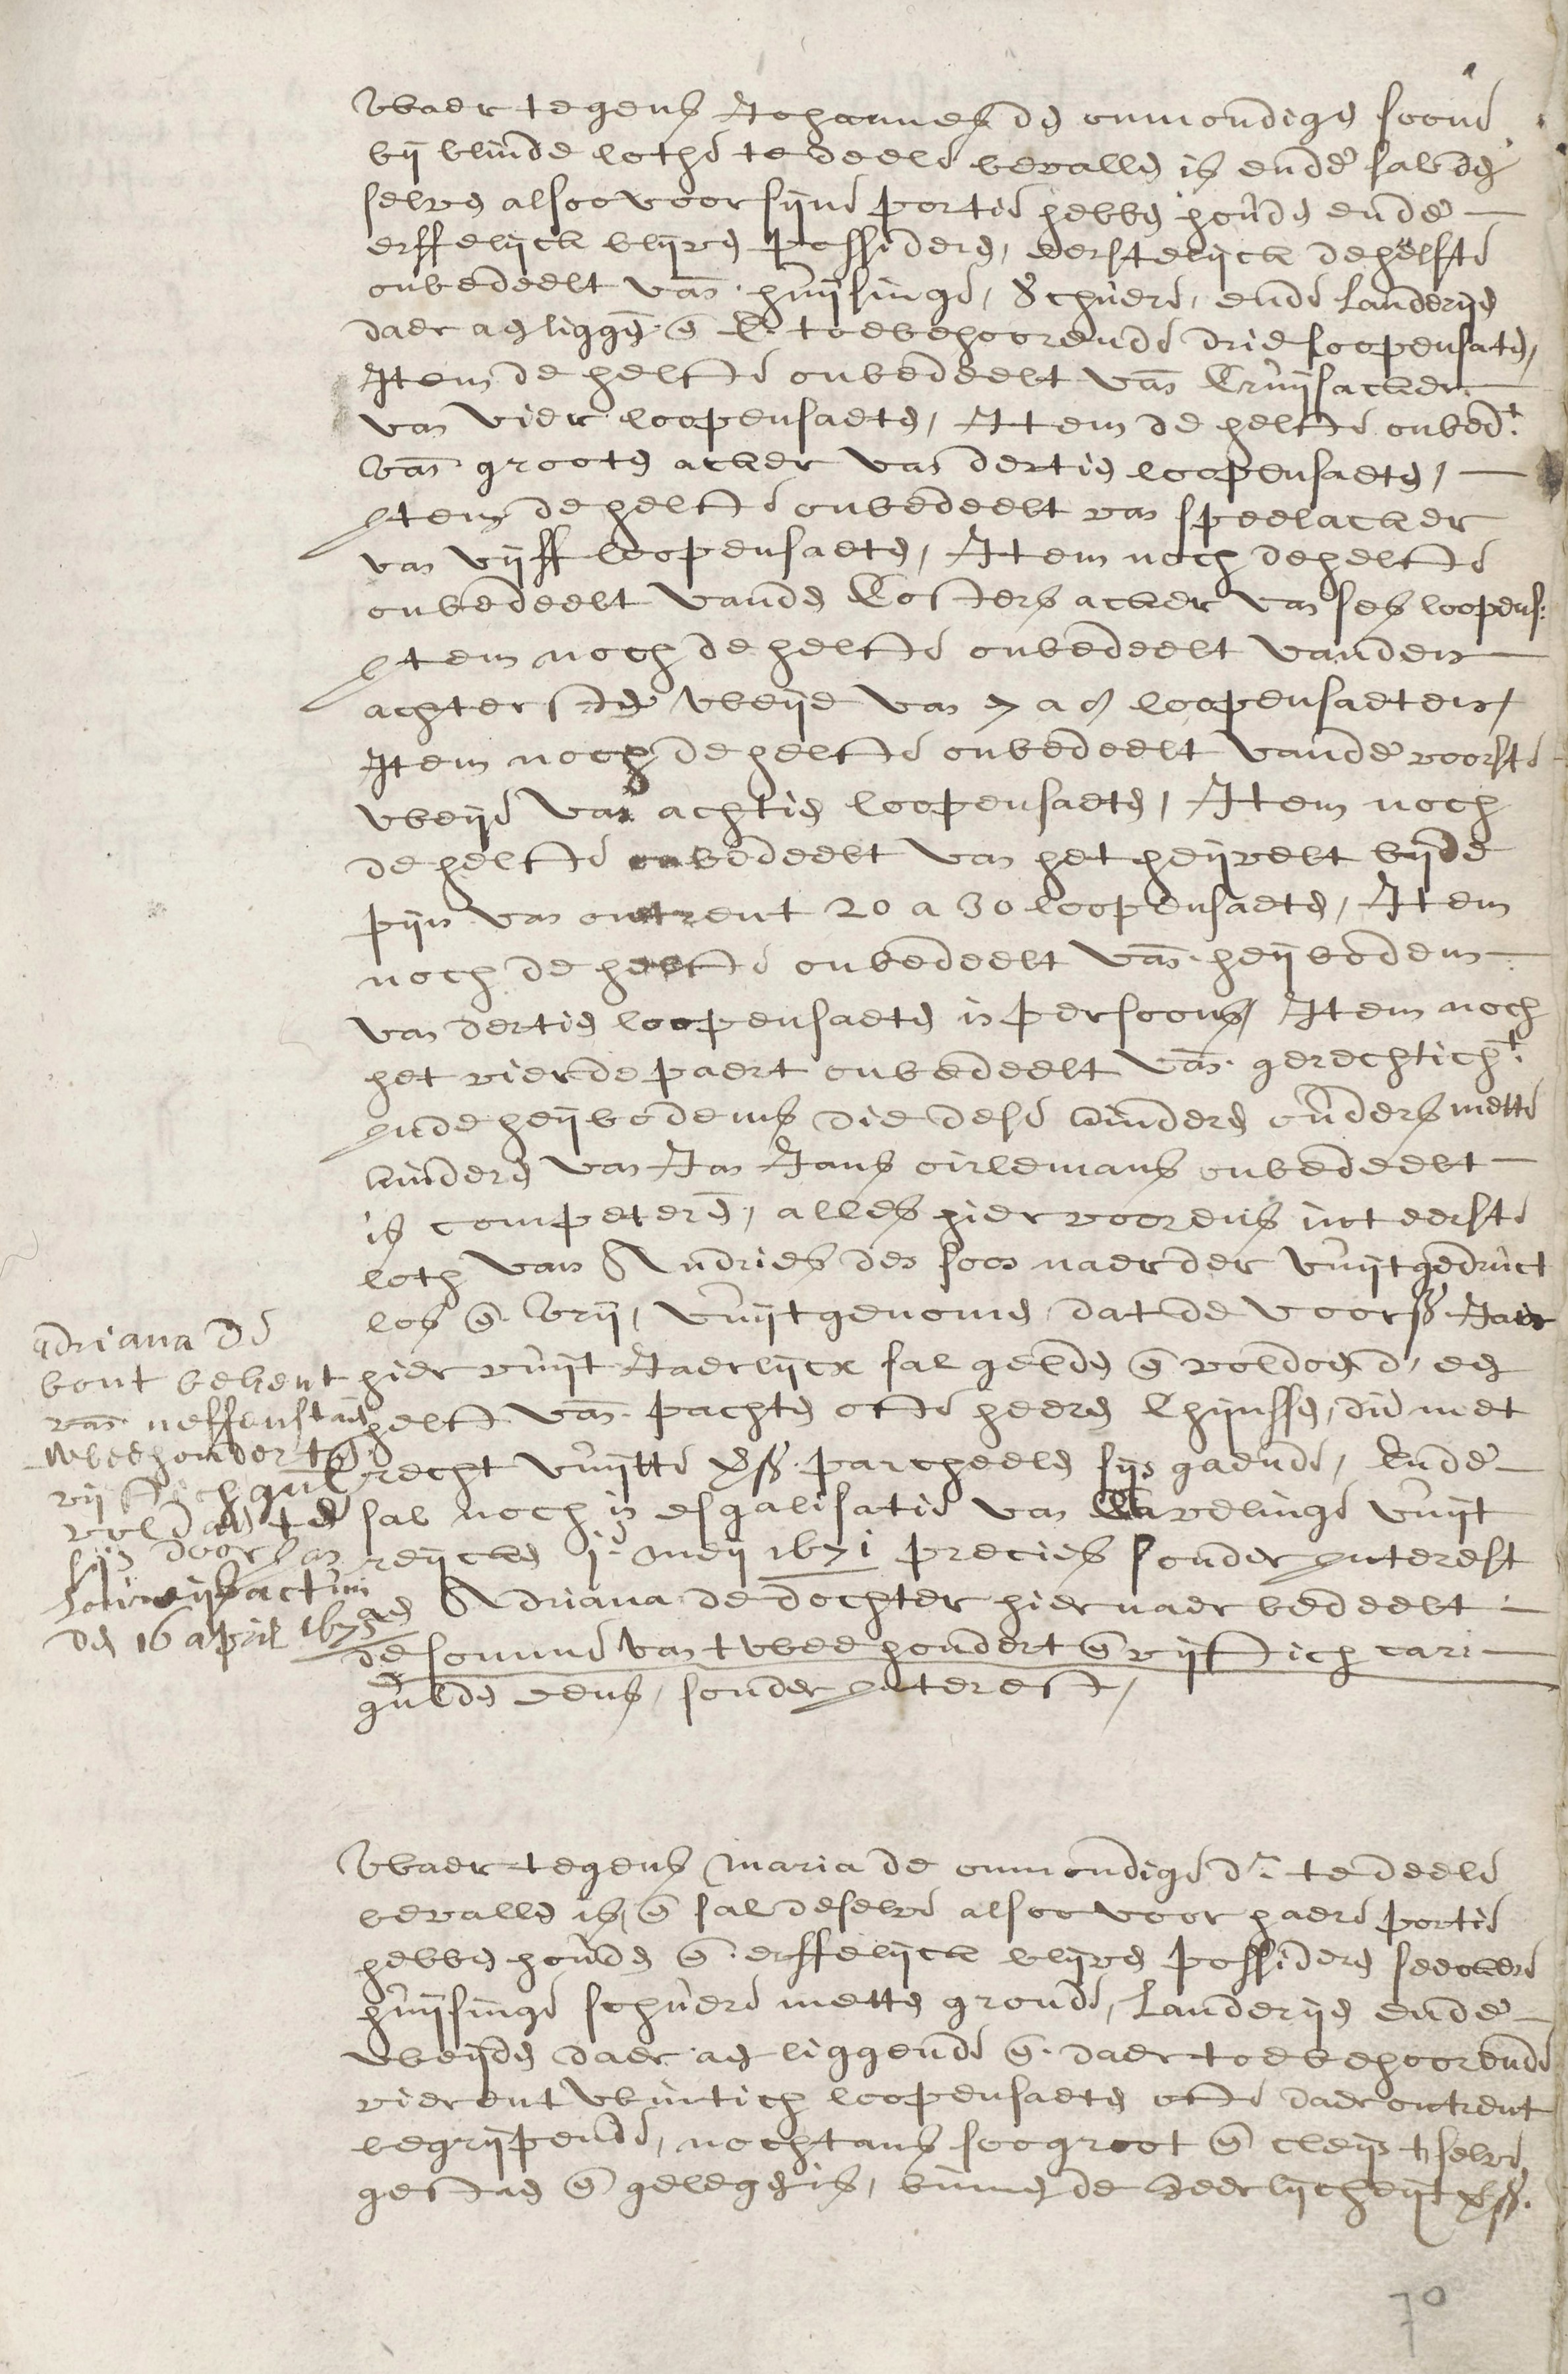 Waer tegens Johannes de onmondige soone
bij blinde lothe te deele bevallen is ende sal de
selve alsoo voor sijne portie hebben houden ende
erffelijck blijven possideren, eerstelijck de helfte
onbedeelt van huijsinge, schuere, ende landerijen
daer aen liggen en toebehoorende drie loopensaten,
Item de helfte onbedeelt van Cruijsacker
van vier loopensaeten, Item de helfte onbed.t
van grooten acker van dertien loopensaeten,
Item de helfte onbedeelt van speelacker
van vijff loopensaeten, Item noch de helfte
onbedeelt vanden Costers acker van ses loopens:
Item noch de helfte onbedeelt vanden
achtersten weijde van 7 a 8 loopensaeten,
Item noch de helfte onbedeelt vande voorste
weijde van achtien loopensaeten, Item noch
de helfte onbedeelt van het heijvelt bijde
pijn van ontrent 20 a 30 loopensaeten, Item
noch de helfte onbedeelt van heijbodem
van dertien loopensaeten in persoons, Item noch
het vierde paert onbedeelt van gerechtich.t
ende heijbodems die dese kinderen ouders mette
kinderen van Jan Jans oirlemans onbedeelt
is competeren, alles hier voorens int eerste
loth van Andries den soon naerder vuijtgedruct
los en vrij, vuijtgenomen dat de voors.
hier vuijt Jaerlijcx sal gelden en voldoen d' een
helft van pachten ofte heeren Chijnssen, die met
recht vuijtte vs. parcheelen sijn gaende, Ende
sal noch in esgalisatie van Cavelinge vuijt
reijcken j. meij 1671 precies sonder Interest
aen Adriana de dochter hier naer bedeelt
de somme van twee hondert en vijftich cari
gulden eens, sonder Interest,
Adriana de
bont bekent
van neffenstaen
twee hondert en
vijftich gul
voldaen te
sijn door Jan
actum
den 16 april 1673
Waer tegens Maria de onmondige d.r te deele
bevallen is, en sal deselve alsoo voor haere portie
hebben houden en erffelijck blijven possideren seeckere
huijsinge schuere metten gronde, landerijen ende
weijden daer aen liggende en daer toebehoorende
vierentwintich loopensaeten ofte daer ontrent
begrijpende, nochtans soo groot en cleijn tselve
gestaen en gelegen is, binnen de Heerlijcheijt vs.
70